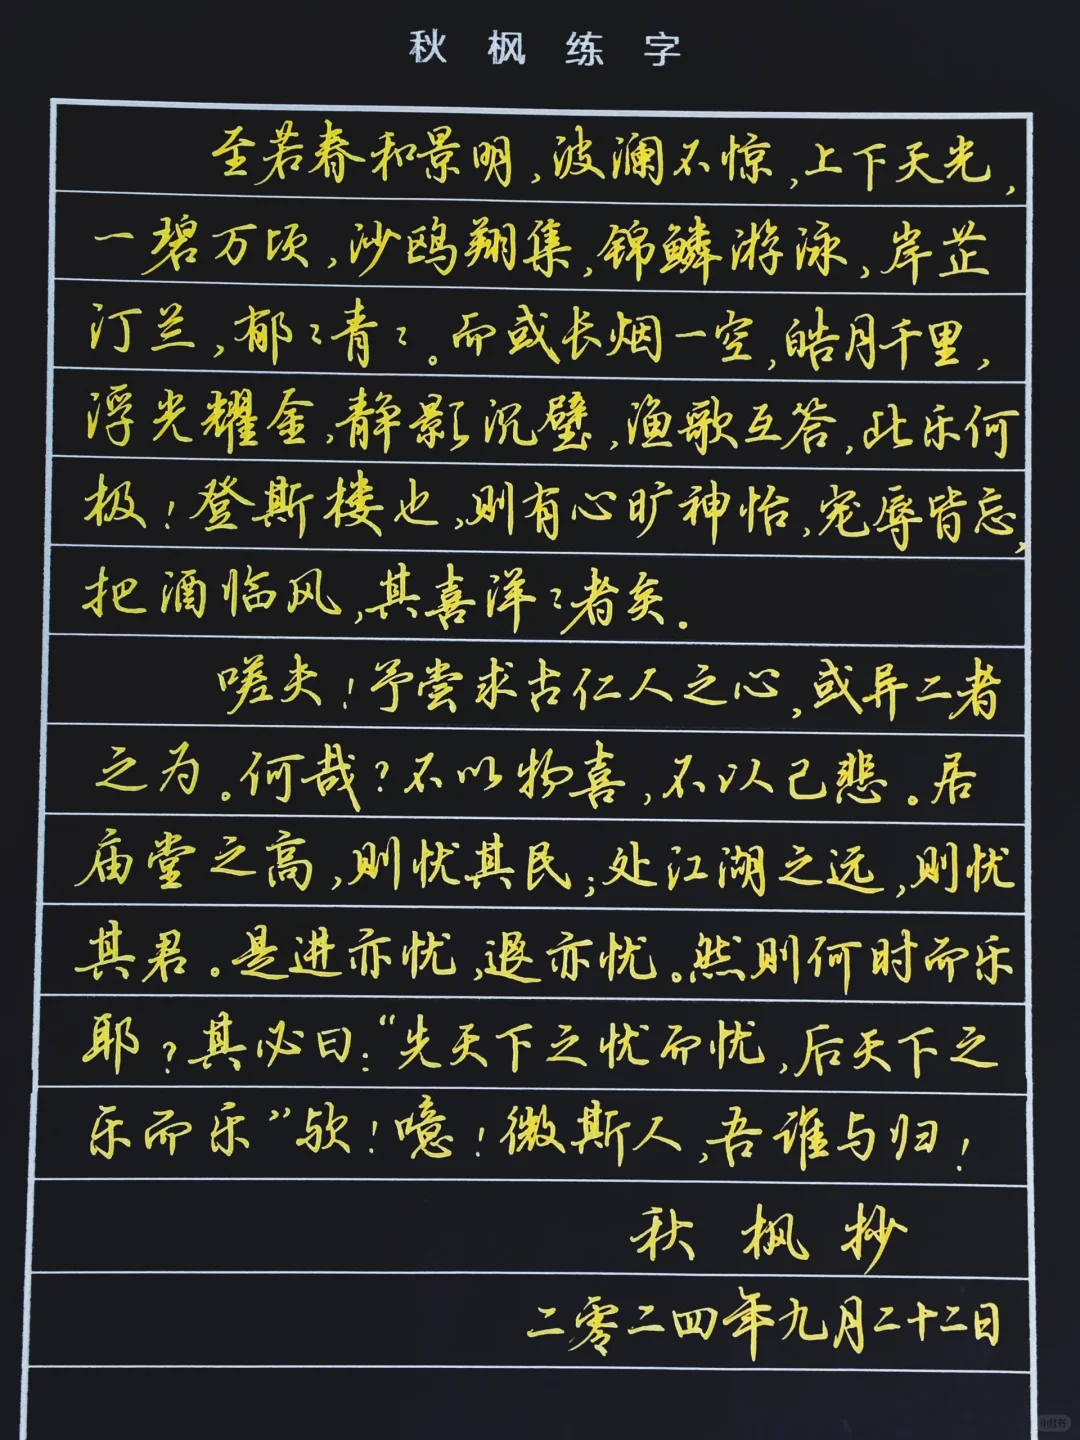 秋枫练字
至若春和景明,波澜不惊,上下天光,
一碧万顷,沙鸥翔集,锦鳞游泳,岸芷
汀兰,郁々青々。而或长烟一空,皓月千里,
浮光耀金,静影沉璧,渔歌互答,此乐何
极!登斯楼也,则有心旷神怡,宠辱皆忘,
把酒临风,其喜洋々者矣.
嗟夫!予尝求古仁人之心,或异二者
之为。何哉?不以物喜,不以己悲。居
庙堂之高,则忧其民;处江湖之远,则忧
其君。是进亦忧,退亦忧。然则何时而乐
耶?其必曰:“先天下之忧而忧,后天下之
乐而乐”欤!噫!微斯人,吾谁与归!
秋枫抄
二零二四年九月二十二日